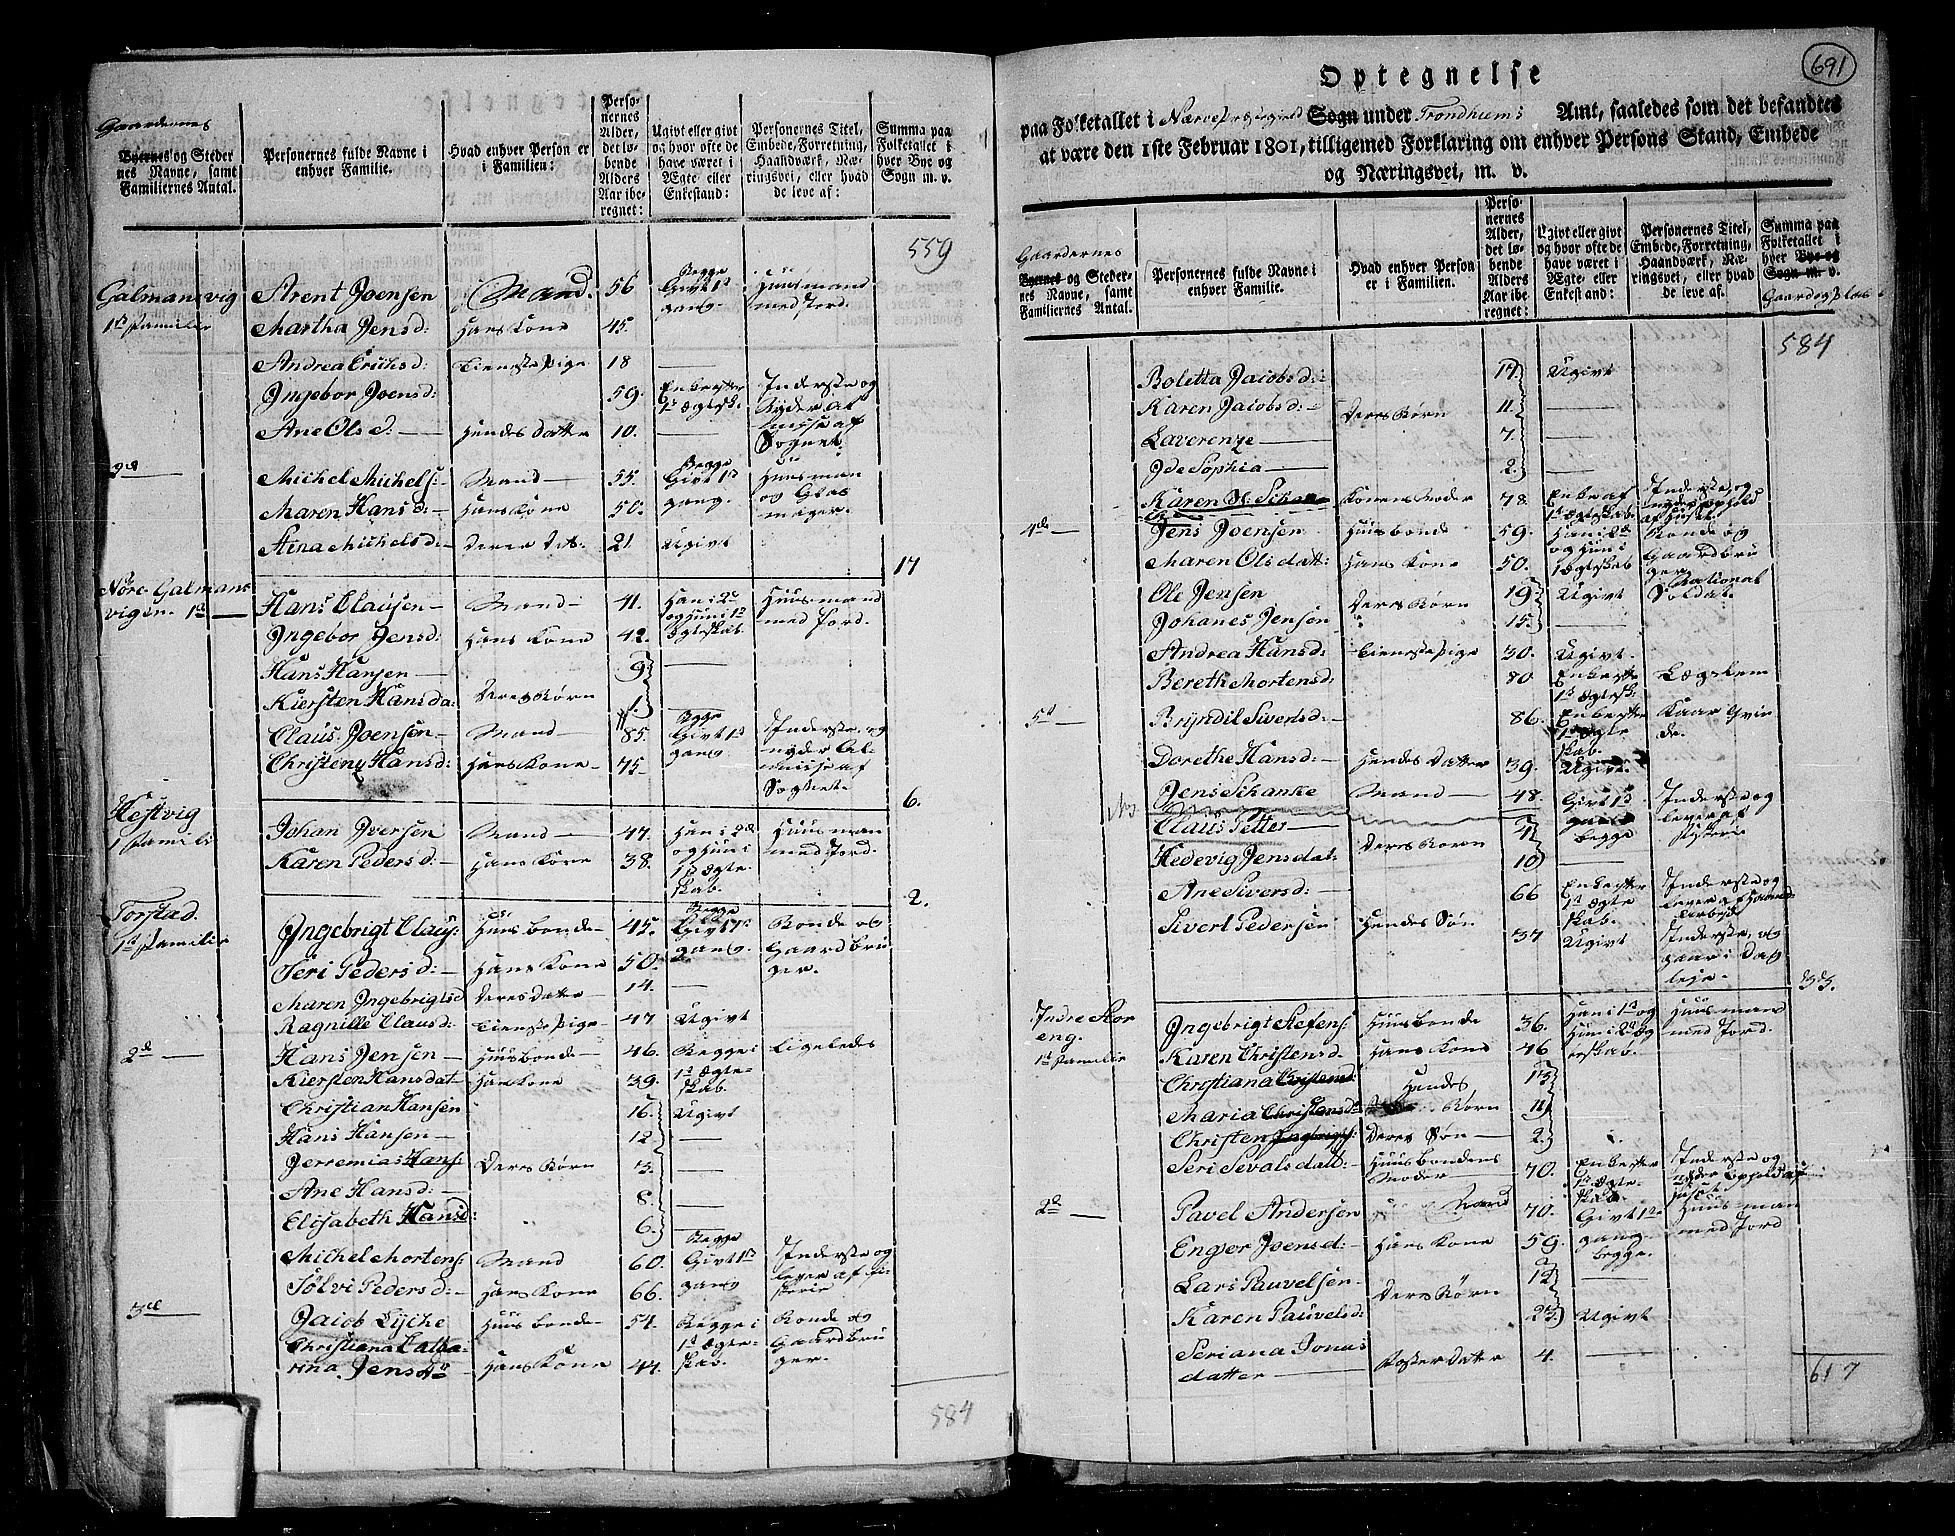 Gaardernes
Byernes og Steder
nes Navne, samt
Familiernes Antal.
Personernes fulde Navne i
enhver Familie.
Hvad enhver Person er
i Familien:
Perso-
nernes
Alder,
det lø-
bende
Alders
Aar ibe-
regnet:
Ugivt eller givt
og hvor ofte de
have været i
Ægte eller
Enkestand:
Personernes Titel,
Embede, Forretning,
Haandværk, Næ-
ringsvei, eller hvad
de leve af:
Summa paa
Folketallet i
hver Bye og
Sogn m. v.
559
Galmansvig Arent Joensen Mand. 56 Begge Givt 1ste gang Huusmand med Jord.
1ste Familie Martha Jensd: Hans Kone 45.
Andrea Erichsd: Tieneste Pige 18 —
Ingebor Joensd: 59. Enkeefter 1ste Ægtesk. Inderste og Nyder Almisse af Sognet
Ane Olsd: — Hendes Datter 10. —
2de — Michel Michels: Mand — 55. Begge Givt 1ste gang. Huusman og Glasmager.
Maren Hansd: — Hans Kone 50.
Stina Michelsd: — Deres Dat: 21. Ugivt
17
Nore Galmans
vigen 1ste — Hans Clausen — Mand — 41. Han i 2de og hun i 1ste Ægteskab. Huusmand med Jord.
Ingebor Jensd: Hans Kone 42.
Hans Hansen — 9 —
Kiersten Hansda: Deres Børn 1.
Claus Joensen — Mand — 85. Begge Givt 1ste gang Inderste, og nyder Almisse af Sognet.
Christeny Hansd: Hans Kone — 75
6.
Hestvig
1 Familie Johan Iversen Mand — 47. Han i 2de og hun i 1ste Ægteskab. Huusman med Jord.
Karen Pedersd: — Hans Kone 38.
2.
Torstad.
1ste Familie Ingebrigt Claus: Huusbonde — 45. Begge Givt 1ste gang. Bonde og Gaardbruger.
Seri Pedersd: — Hans Kone 50.
Maren Ingebrigtsd Deres Datter 14. —
Ragnille Clausd: Tieneste Pige — 47 Ugivt
2de — Hans Jensen — Huusbonde — 46. Begge i 1ste Ægteskab. Ligeledes
Kiersten Hansdat — Hans Kone 39.
Christian Hansen 16. Ugivt
Hans Hansen — 12 —
Jerremias Hans: Deres Børn 3. —
Ane Hansd: — 8. —
Elisabeth Hansd: 6. —
Michel Mortens: Mand 60. Begge Givt 1ste gang Inderste og lever af Fiskerie
Sølvi Pedersd: — Hans Kone 66.
3de Jacob Lyche Huusbonde — 54. Begge i 1ste Ægteskab. Bonde og Gaardbruger.
Christiana Catha-
rina Jensdr Hans Kone 44.
584
691
Optegnelse
paa Folketallet i Nærøe Præstegield Sogn under Trondhiems Amt, saaledes som det befandtes
at være den 1ste Februar 1801, tilligemed Forklaring om enhver Persons Stand, Embede
og Næringsvei, m. v.
Gaardernes
Byernes og Steder-
nes Navne, samt
Familiernes Antal.
Personernes fulde Navne i
enhver Familie.
Hvad enhver Person
er i Familien.
Perso-
nernes
Alder,
det lø-
bende
Alders
Aar ibe-
regnet:
Ugivt eller givt
og hvor ofte de
have været i
Ægte- eller
Enkestand:
Personernes Titel,
Embede, Forretning,
Haandværk, Næ-
ringsvei, eller hvad
de leve af.
Summa paa
Folketallet i
hver Bye og
Sogn m. v.
584
Boletta Jacobsd: 17 Ugivt
Karen Jacobsd: — Deres Børn 11. —
Laverenze — 7. —
Ide Sophia — 2. —
Karen Schanche Konens Moder 78. Enke af 1ste Ægteskab. Inderste, og nyder Ophold af Huset
4de — Jens Joensen Huusbonde 59. Han i 2de og Hun i 1 Ægteskab Bonde og Gaardbruger
Maren Olsdatt: Hans Kone 50.
Ole Jensen Deres Børn 19 Ugivt National Soldat.
Johanes Jensen 15. —
Andrea Hansd: Tieneste Pige 30. Ugivt.
Bereth Mortensd: 80 Enkeefter 1ste Ægtesk. Lægslem
5te — Bryndil Sivertsd: — 86. Enkeefter 1ste Ægteskab. Kaar Qvinde.
Dorethe Hansd: — Hendes Datter 39. Ugivt.
Jens Schanke Mand — 48. Givt 1ste gang begge Inderste og lever af Fiskerie
Claus Petter — Deres Børn 4
Hedevig Jensdat 10 —
Ane Siversd: — 66 Enkeefter 1ste Ægteskab. Inderste og lever af Haand arbeyde
Sivert Pedersen Hendes Søn 37 Ugivt Inderste, og gaar i Dagleje.
33.
Indre Stor
eng.
1ste Familie Ingebrigt Stefens: Huusbonde 36. Han i 1ste og Hun i 2de Ægteskab. Huusmand med Jord.
Karen Christensd — Hans Kone 46
Christiana Christensd Hendes 13
Maria Christensd Børn 11
Christen Ingebrigts: Deres Søn — 2.
Seri Sevalsdatt: Huusbondens Moder — 70. Enkeefter 1ste Ægteskab. Inderste og nyder Ophold af Huset
2de — Pavel Andersen Mand 70. Givt 1ste gang begge. Huusman med Jord
Engeor Joensd: — Hans Kone 59.
Lars Pauvelsen — Deres Børn 12 —
Karen Pauvelsd: 23. Ugivt
Seriana Jonas
datter — Foster Datter 4. —
617